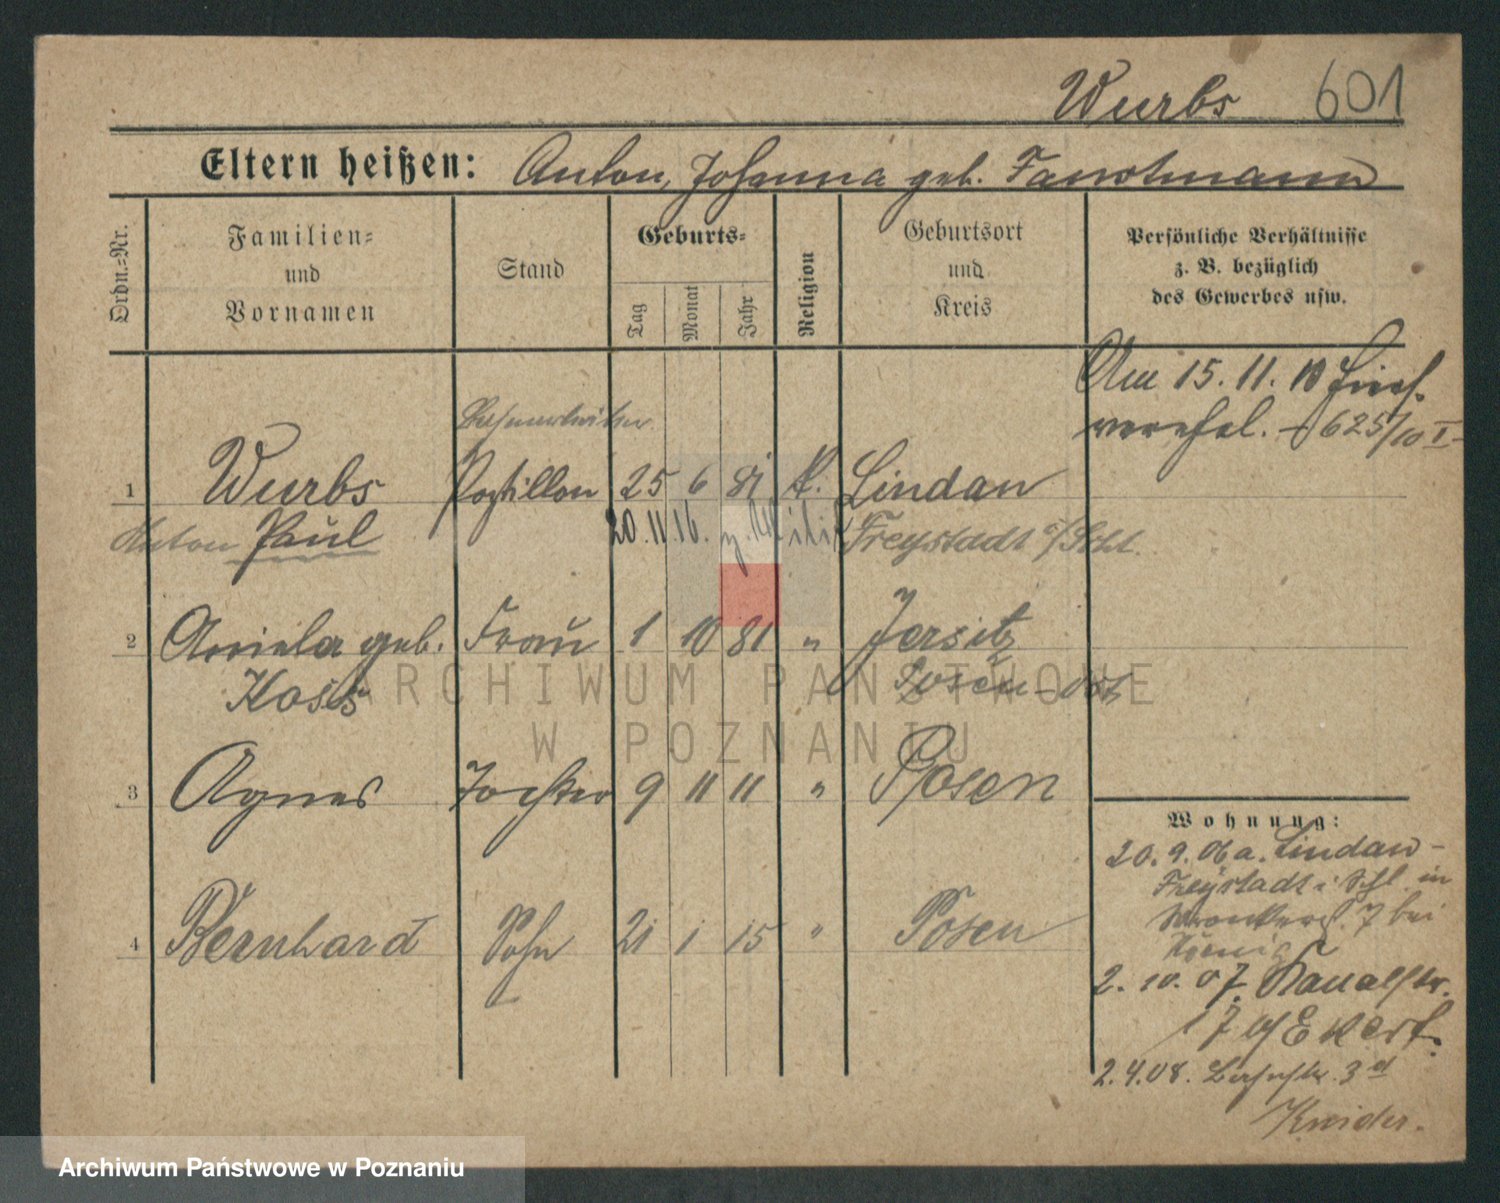 Wurbs 601
Eltern heißen: Anton, Johanna geb.
Ordn.-Nr.
Familien-
und
Vornamen
Stand
Geburts-
Tag
Monat
Jahr
Religion
Geburtsort
und
Kreis
Persönliche Verhältnisse
z. B. bezüglich
des Gewerbes usw.
Am 15. 11. 10
625/10 I
1 Wurbs Postillon 25 6 81 k. Lindau
Anton Paul 20. 11. 16. z. Freystadt i/Schl.
2 Aniela geb. Frau 1 10 81 " Jersitz
Posen-Ost
3 Agnes Tochter 9 11 11 " Posen
4 Bernhard Sohn 21 1 15 " Posen
Wohnung:
20. 9. 06 a. Lindau-
Freystadt i. Schl. in
7 bei
König
2. 10. 07. Kanalstr.
17 b/ Ekert.
2. 4. 08. 3
ARCHIWUM PAŃSTWOWE
W POZNANIU
Archiwum Państwowe w Poznaniu